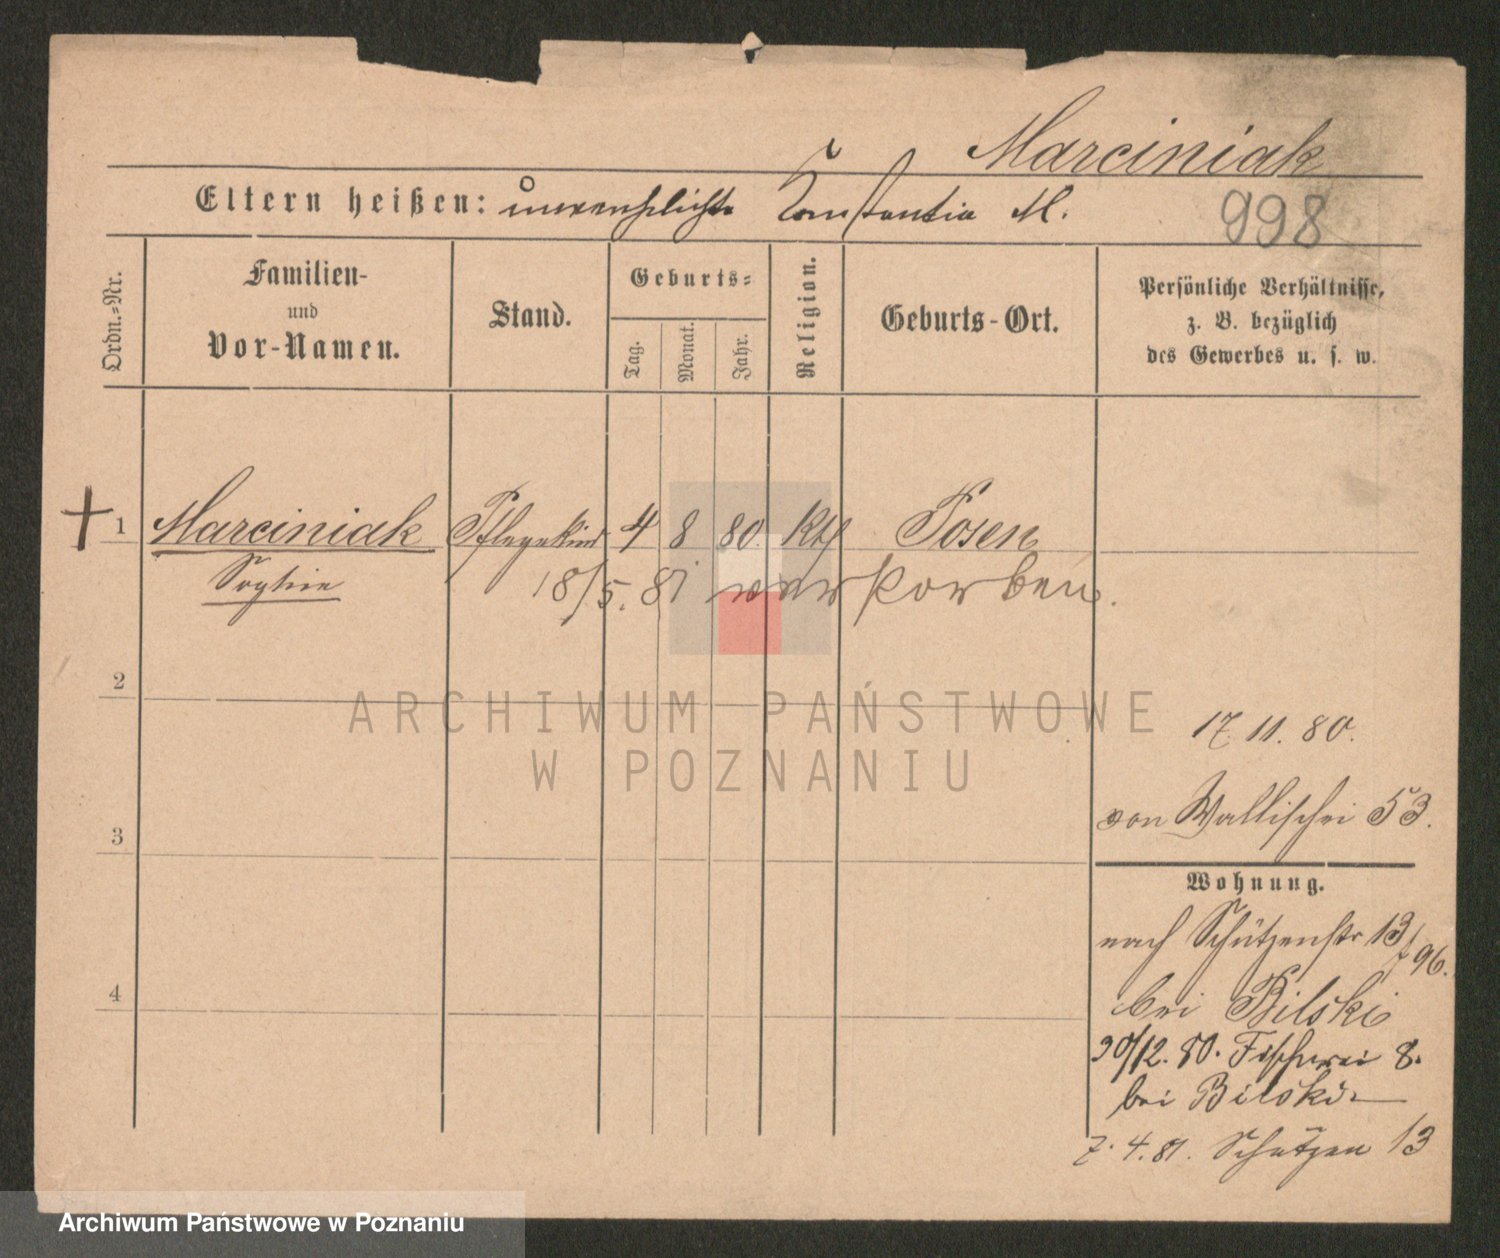 Marciniak
Eltern heißen: unverehelichte Constantia M.
998
Ordn.=Nr.
Familien-
und
Vor-Namen.
Stand.
Geburts=
Tag.
Monat.
Jahr.
Religion.
Geburts-Ort.
Persönliche Verhältnisse,
z. B. bezüglich
des Gewerbes u. s. w.
1 Marciniak Pflegekind 4 8 80 Kth Posen
Sophie
18/5. 81 verstorben.
2
ARCHIWUM PAŃSTWOWE
W POZNANIU
17. 11. 80.
3
von Wallischei 53.
Wohnung.
nach Schützenstr 13/ 96.
4
bei Bilski
30/12. 80. Fischerei 8.
bei Bilski
7. 4. 81. Schützen 13
Archiwum Państwowe w Poznaniu